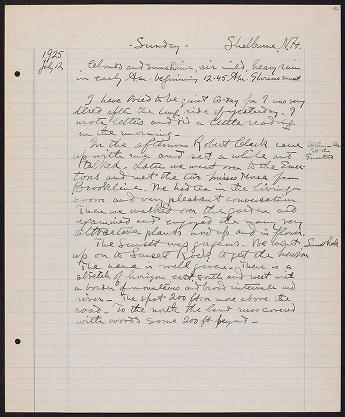 1925
July 12
Sunday. Shelburne, N.H.
Clouds and sunshine, air mild, heavy rain
in early a.m. beginning 12.45 a.m. Glorious sunset
I have tried to be quiet to-day for I was very
tired after the long ride of yesterday. I
wrote letters and did a little reading
in the morning.
In the afternoon Robert Clark came
up with me and sat a while and
talked. Later we went over to the
and met the two Misses from
Brookline. We had tea in the living-
room and very pleasant conversation.
Then we walked over the garden and
examined and enjoyed the many very
attractive plants now up and in flower.
The Sunset was gorgeous. We went
up on to Sunset Rock to get the horizon
Sunset Rock
The name is well given. There is a
stretch of horizon east, south and west with
a border of mountains and broad intervale and
river. The spot 200 ft or more above the
road. To the north the land was covered
with woods some 200 ft beyond.